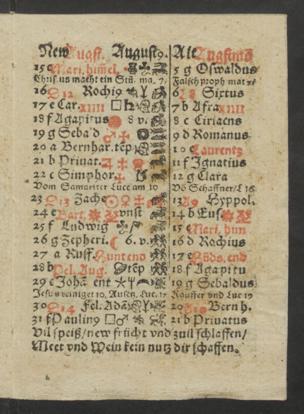 New Augst. Augsto. Alt Augstmo
15 c Mari. him̃el. 5 g Oswaldus
Chrisus macht ein Stũ. ma. 7. Falsch proph mat 7
16 d 12 Rochi 6 Sirtus
17 e Car. XIIII 7 b Afra XIII
18 f Agapitus 8 v. 8 c Ciriacus
19 g Sebald 9 d Romanus
20 a Bernhar. tẽp 10 e Laurentz
21 b Privat. 11 f Ignatius
22 c Simphor. 12 g Clara
Vom Samariter Luce am 10 Võ Schaffner L 16
23 D 13 Zache 13 A 9 Hyppol.
24 e Bart. vnst 14 b Eus
25 f Ludwig 15 c Mari. him
26 g Zepheri. 6. v. 16 d Rochius
27 a Ruff. Hunt end 17 e Hũds. end
28 b Pel. Aug. tẽp 18 f Agapitu
29 c Johã ent 19 g Sebaldus
Jesus reiniget 10. Aussen. Luc. 17 Kauffer vnd Luc 19
30 D 14 Fel. Ada 20 A 10 Bern h.
31 Paulin 9 21 b Privatus
Vil speiß/new frücht vnd zuil schlaffen/
Meet vnd Wein kein nutz dir schaffen.